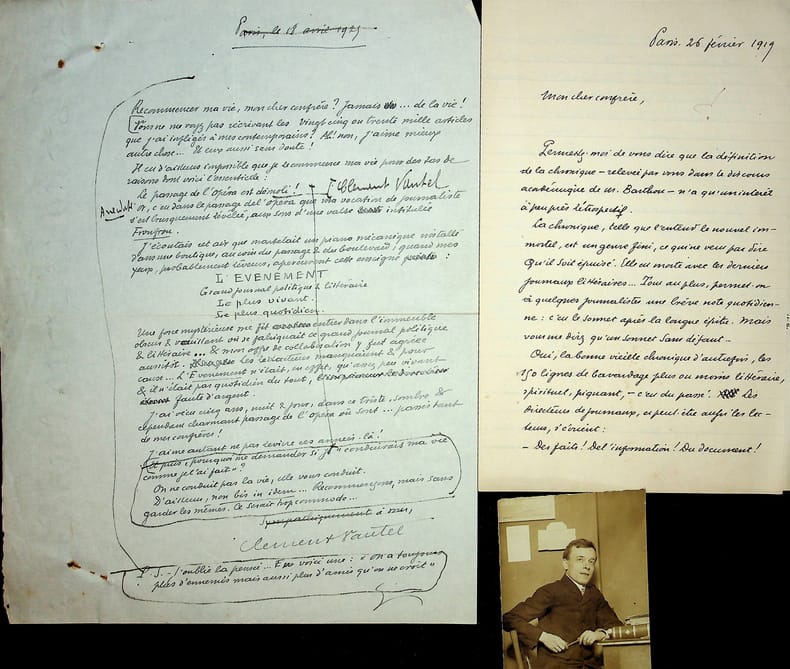 Paris, le 18 avril 1925
Recommencer ma vie, mon cher confrère ? Jamais ... de la vie !
Vous ne me voyez pas récrivant les vingt cinq ou trente mille articles
que j'ai infligés à mes contemporains ? Ah ! non, j'aime mieux
autre chose... Et eux aussi sans doute !
Il est d'ailleurs impossible que je recommence ma vie pour des tas de
raisons dont voici l'essentielle :
Clément Vautel
Le passage de l'Opéra est démoli !
Or, c'est dans le passage de l'Opéra que ma vocation de journaliste
s'est brusquement révélée, aux sons d'une valse intitulée
Froufrou.
J'écoutais cet air que martelait un piano mécanique installé
dans une boutique, au coin du passage & du boulevard, quand mes
yeux, probablement rêveurs, aperçurent cette enseigne :
L'EVENEMENT
Grand journal politique & littéraire
Le plus vivant.
Le plus quotidien.
Une force mystérieuse me fit entrer dans l'immeuble
obscur & où se fabriquait ce grand journal politique
& littéraire ... & mon offre de collaboration y fut agréée
aussitôt. Les rédacteurs manquaient & pour
cause... L'Evenement n'était, en effet, qu'assez peu vivant
& il n'était pas quotidien du tout,
faute d'argent.
J'ai vécu cinq ans, nuit & jour, dans ce triste, sombre &
cependant charmant passage de l'Opéra où sont ... passés tant
de mes confrères !
J'aime autant ne pas revivre ces années-là !
Et puis, pourquoi me demander si je "conduirais ma vie
comme je l'ai fait" ?
On ne conduit pas la vie, elle vous conduit.
D'ailleurs, non bis in idem ... Recommençons, mais sans
garder les mêmes. Ce serait trop commode ...
Sympathiquement à vous,
Clément Vautel
P.S. - J'oublie la pensée ... En voici une : « On a toujours
plus d'ennemis mais aussi plus d'amis qu'on ne croit »
Paris. 26 février 1919
Mon cher confrère,
Permettez-moi de vous dire que la définition
de la chronique - relevée par vous dans le discours
académique de M. Barthou - n'a qu'un intérêt
à peu près rétrospectif.
La chronique, telle que l'entend le nouvel im-
mortel, est un genre fini, ce qui ne veut pas dire
qu'il soit épuisé. Elle est morte avec les derniers
journaux littéraires... Tout au plus, permet-on
à quelques journalistes une brève note quotidien-
ne : c'est le sonnet après la langue épître. Mais
vous me direz qu'un sonnet sans défaut -
Oui, la bonne vieille chronique d'autrefois, les
150 lignes de bavardage plus ou moins littéraire,
spirituel, piquant, - c'est du passé. Les
directeurs de journaux, et peut-être aussi les lec-
teurs, s'écrient :
- Des faits ! De l'information ! Du document !